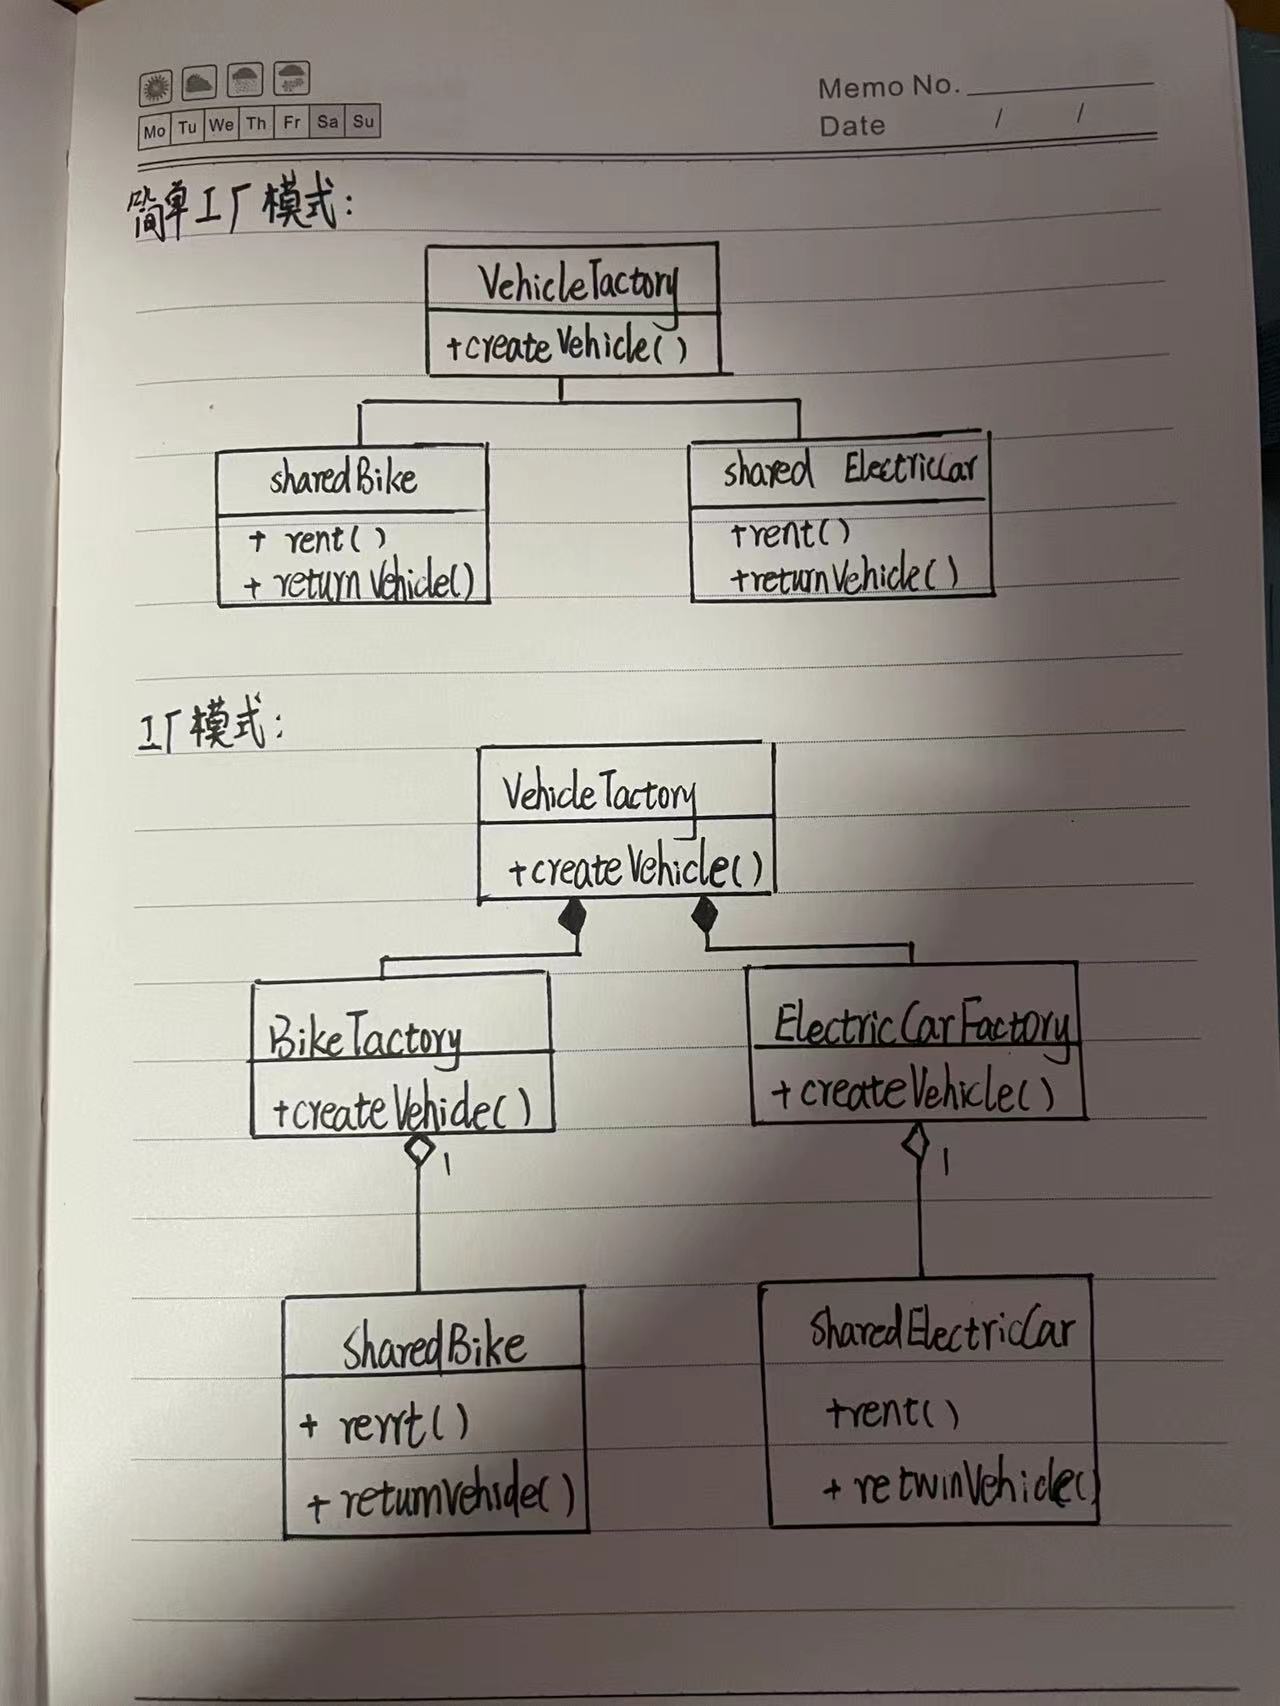 Mo Tu We Th Fr Sa Su
Memo No.
Date / /
简单工厂模式:
VehicleTactory
+createVehicle()
sharedBike
+ rent()
+ returnVehicle()
shared ElectricCar
+rent()
+returnVehicle()
工厂模式:
VehicleTactory
+createVehicle()
BikeTactory
+createVehicle()
ElectricCarFactory
+createVehicle()
1
1
SharedBike
+ rent()
+ returnVehicle()
SharedElectricCar
+rent()
+ returnVehicle()